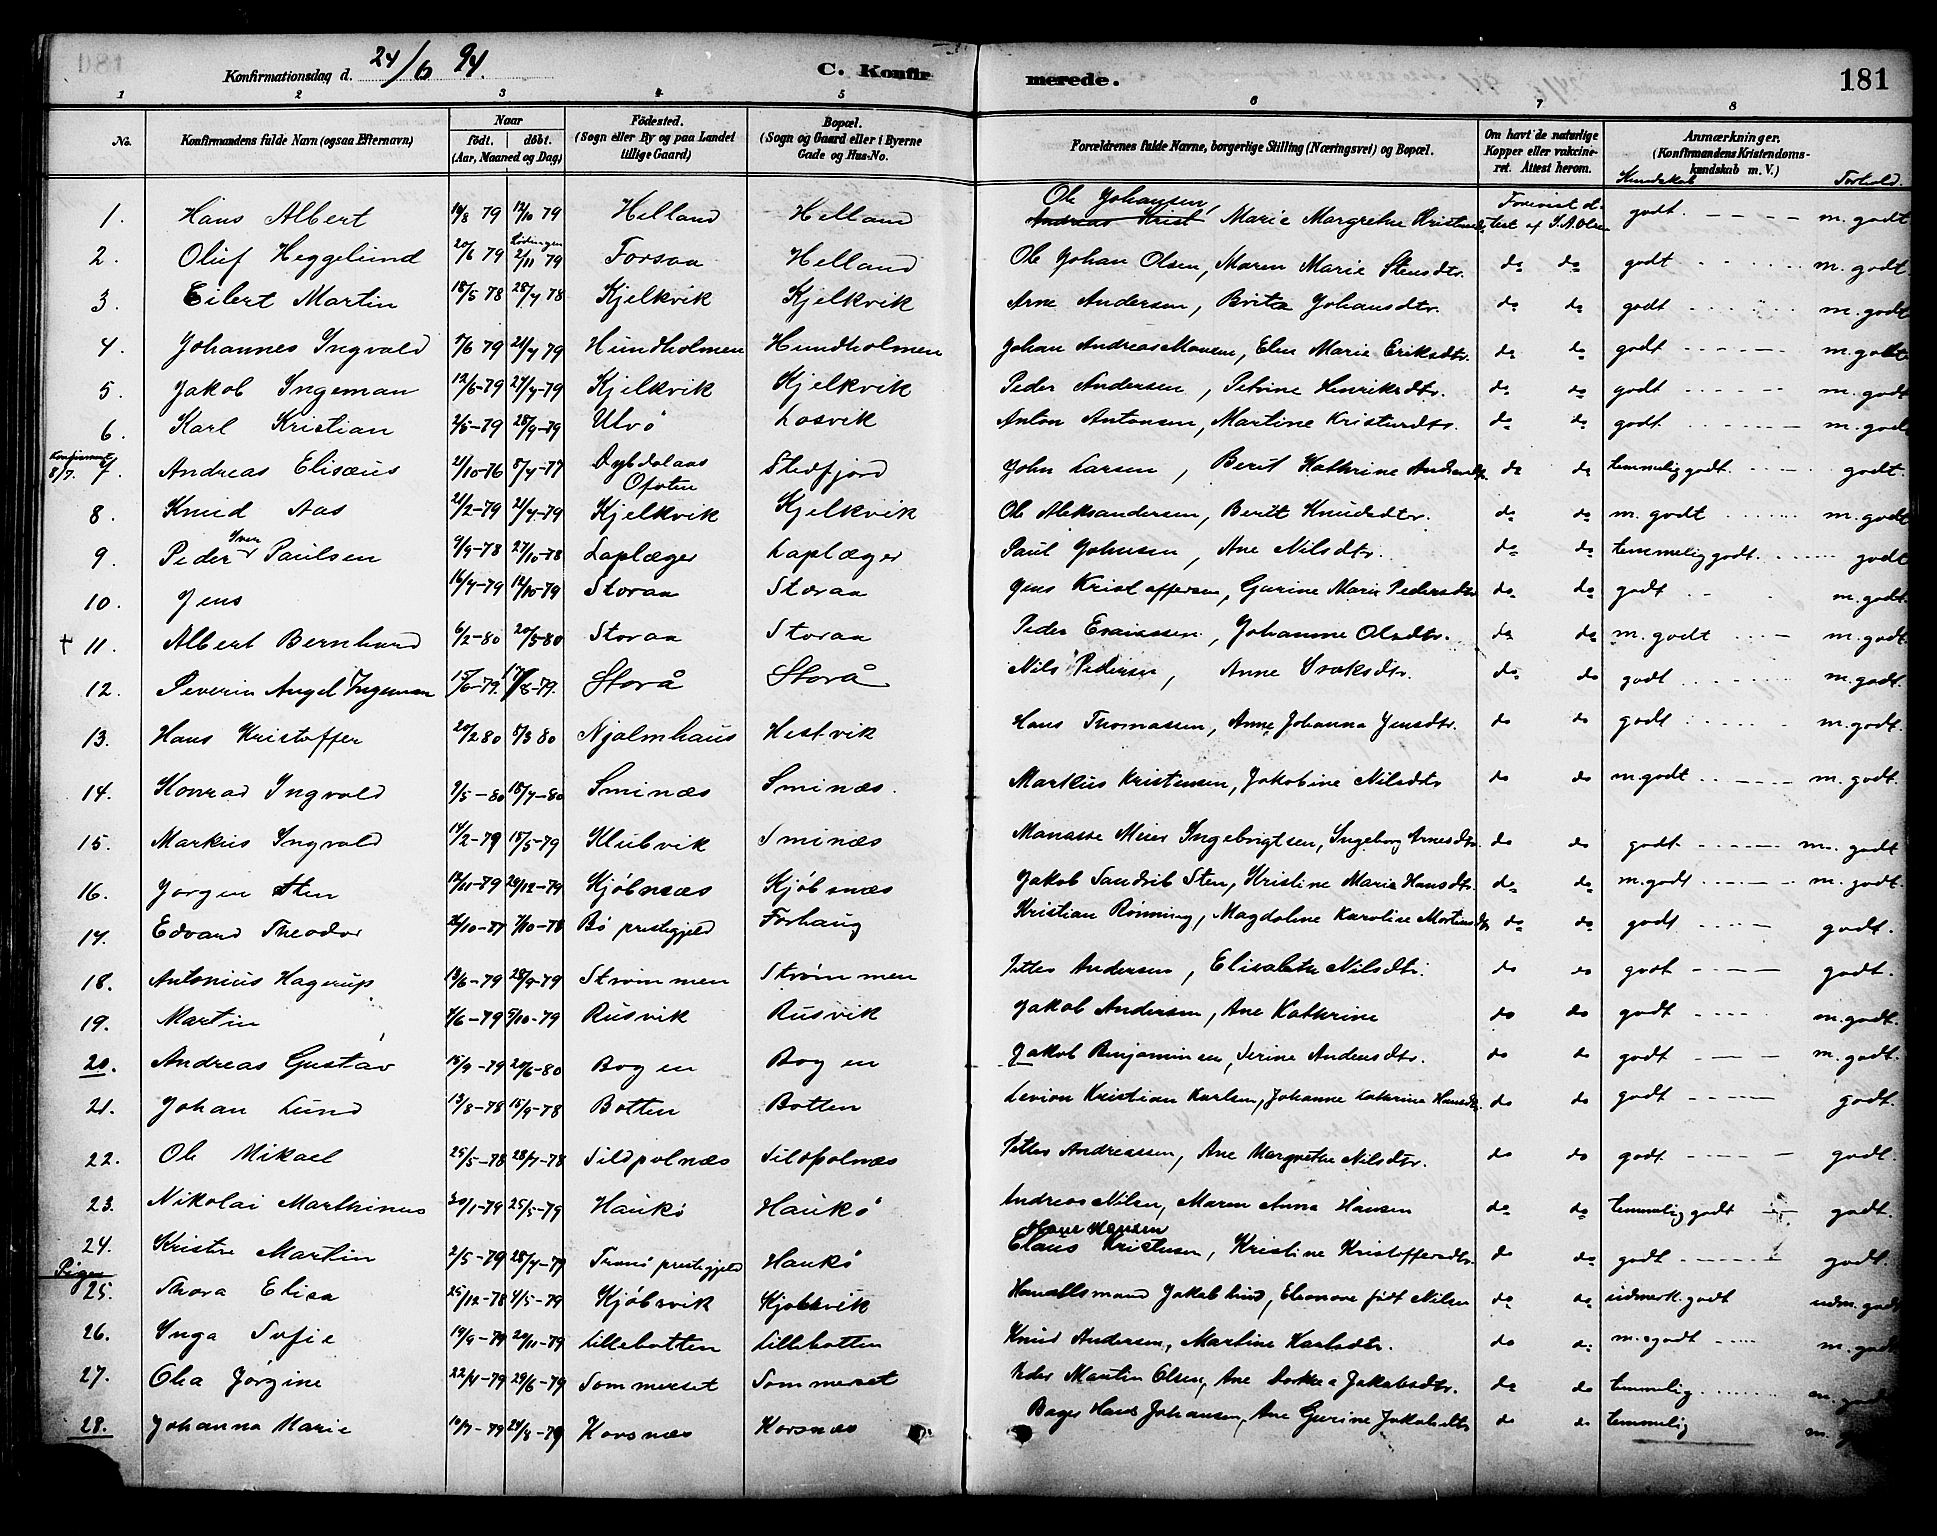 Konfirmationsdag d. 24/6 94. C. Konfirmerede. 181
1 2 3 4 5 6 7 8
No. Konfirmandens fulde Navn (ogsaa Efternavn) Naar født. døbt. (Aar, Maaned og Dag) Fødested. (Sogn eller By og paa Landet tillige Gaard) Bopæl. (Sogn og Gaard eller i Byerne Gade og Hus-No. Forældrenes fulde Navne, borgerlige Stilling (Næringsvei) og Bopæl. Om havt de naturlige Kopper eller vaccineret. Attest herom. Anmærkninger. (Konfirmandens Kristendomskundskab m. V.) Kundskab Forhold.
1. Hans Albert 14/8 79 12/10 79 Helland Helland Ole Johansen, Andreas Krist Marie Margrethe Forevist at- test af godt. m. godt
2. Oluf Heggelund 20/6 79 Lødingen 2/11 79 Forsaa Helland Ole Johan Olsen, Maren Marie Stensdtr. do do godt m. godt.
3. Eilert Martin 18/5 78 28/7 78 Kjelkvik Kjelkvik Arne Andersen, Brita Johansdtr. do do godt m. godt.
4. Johannes Ingvald 7/6 79 21/7 79 Hundholmen Hundholmen Johan Andreas Monsen, Elen Marie Eriksdtr. do do godt m. godt
5. Jakob Ingeman 12/6-79 27/7-79 Kjelkvik Kjelkvik Peder Andersen, Petrine Henriksdtr. do do godt m. godt
6. Karl Kristian 2/5-79 28/9-79 Ulvö Losvik Anton Antonsen, Martine do do godt m. godt
Konfirmeret 8/7. 7. Andreas Elisæus 2/10-76 8/7-77 Dybdalaas Ofoten Stefjord John Larsen, Berit Kathrine do do temmelig godt. godt.
8. Knud Aas 21/2-79 21/7-79 Kjelkvik Kjelkvik Ole Aleksandersen, Berit Knudsdtr. do do m. godt m. godt
9. Peder Iver Paulsen 9/9-78 27/10-78 Laplæger Laplæger Paul Johnsen, Ane Nilsdtr. do do temmelig godt. godt
10. Jens 16/7-79 12/10-79 Storaa Storaa Jens Kristoffersen, Gurine Marie Pedersdtr do do godt m. godt.
† 11. Albert Bernhard 6/2-80 20/5-80 Storaa Storaa Peder Esaiassen, Johanne Olsdtr. do do m. godt m. godt.
12. Severin Angel Ingeman 15/6-79. 17/8-79. Storå Storå Nils Pedersen, Anne Isaksdtr. do do godt m. godt.
13. Hans Kristoffer 20/2 80 8/3 80 Njalmhaus Hestvik Hans Thomassen, Anne Johanna Jensdtr. do do godt m. godt.
14. Konrad Ingvald 9/5-80 18/7-80 Sminæs Sminæs. Markus Kristensen, Jakobine Nilsdtr do do m godt m. godt.
15. Markus Ingvald 14/2-79 18/5-79 Klubvik Sminæs Manasse Meier Ingebrigtsen, Ingeborg Arnesdtr. do do godt m. godt
16. Jørgen Sten 12/11-79 20/12-79 Kjöbnæs Kjöbnæs Jakob Sandvik Sten, Kristine Marie Hansdtr. do do m. godt m. godt.
17. Edvard Theodor 24/10-77 7/10-78 Bö prestegjeld Forhaug Kristian Rønning, Magdalene Karoline do do godt godt.
18. Antonius Hagerup 13/6-79 28/9-79 Strömmen Strömmen Petter Andersen, Elisabeth Nilsdtr. do do godt godt.
19. Martin 4/6-79 5/10-79 Rusvik Rusvik Jakob Andersen, Ane Kathrine do do godt m. godt.
20. Andreas Gustav 15/9-79 20/6-80 Bogen Bogen Jakob Benjaminsen, Serine Andersdtr. do do godt m. godt.
21. Johan Lund 13/8-78 15/9-78 Botten Botten Levion Kristian Karlsen, Johanne Kathrine Hansdtr. do do godt godt.
22. Ole Mikael 25/5-78 28/7-78 Sildpolnæs Sildpolnæs Petter Andreassen, Ane Margrethe Nilsdtr. do do godt godt.
23. Nikolai Marthinus 30/1-79 25/5-79 Haukö Haukö Andreas Nilsen, Maren Anna Hansen do do temmelig godt godt.
24. Kristen Martin 2/5-79 28/7-79 Tranö prestegjeld Haukö Hansen Claus Kristensen, Kristine Kristoffersdtr. do do godt godt.
Piger
25. Thora Elisa 25/12-78 4/5-79 Kjöbsvik Kjöbsvik Handelsmand Jakob Lund, Eleonore født Nilsen do do udmerk. godt udm. godt
26. Inga Sofie 19/9-79 24/11-79 Lillebotten Lillebotten Knud Andersen, Martine Karlsdtr. do do m. godt m. godt
27. Olea Jørgine 22/4-79 29/6-79 Sommerset Sommerset Peder Martin Olsen, Ane Dorthea Jakobsdtr. do do temmelig m. godt
28. Johanna Marie 10/7-79 24/8-79 Korsnæs Korsnæs Bager Hans Johansen, Ane Gurine Jakobsdtr do do temmelig m.